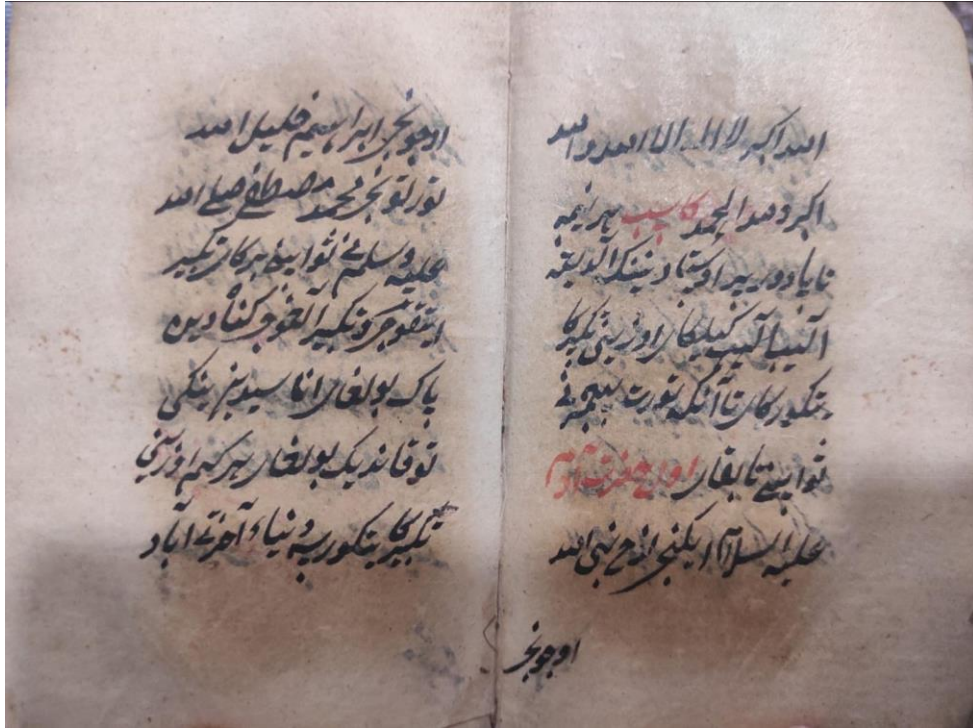 الله اکبر لا اله الا الله و الله
اکبر و لله الحمد کاسب هر نیمه
تاپادور پیر اوستادنینک آلدیقه
آلیب کیلکان اوزینی تکبیرکا
یتکورکان تا آنکه تورت پیغمبرنی
ثوابینی تاپقای اول حضرت آدم
علیه السلام ایکنجی نوح نبی الله
اوچونجی
اوچونجی ابراهیم خلیل الله
تورلتونجی محمد مصطفی صلی الله
علیه و سلم نی ثوابینی هر کام تکبیر
ایتقوجی و تکبیر آلغوجی کناه دین
پاک بولغای اناسیدین ینکی
توقاندیک بولغای هر کیم اوزینی
تکبیرکا یتکورسه دنیا و آخرتی آباد